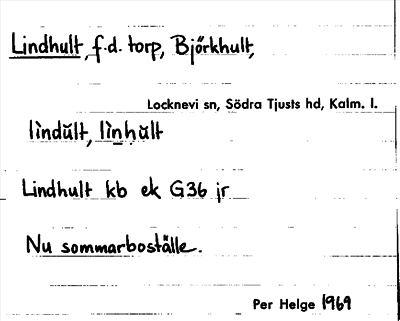 Lindhult, f.d. torp, Björkhult,
Locknevi sn, Södra Tjusts hd, Kalm. l.
lìndŭlt, lìn̠ḥŭlt
Lindhult kb ek G36 jr
Nu sommarboställe.
Per Helge 1969